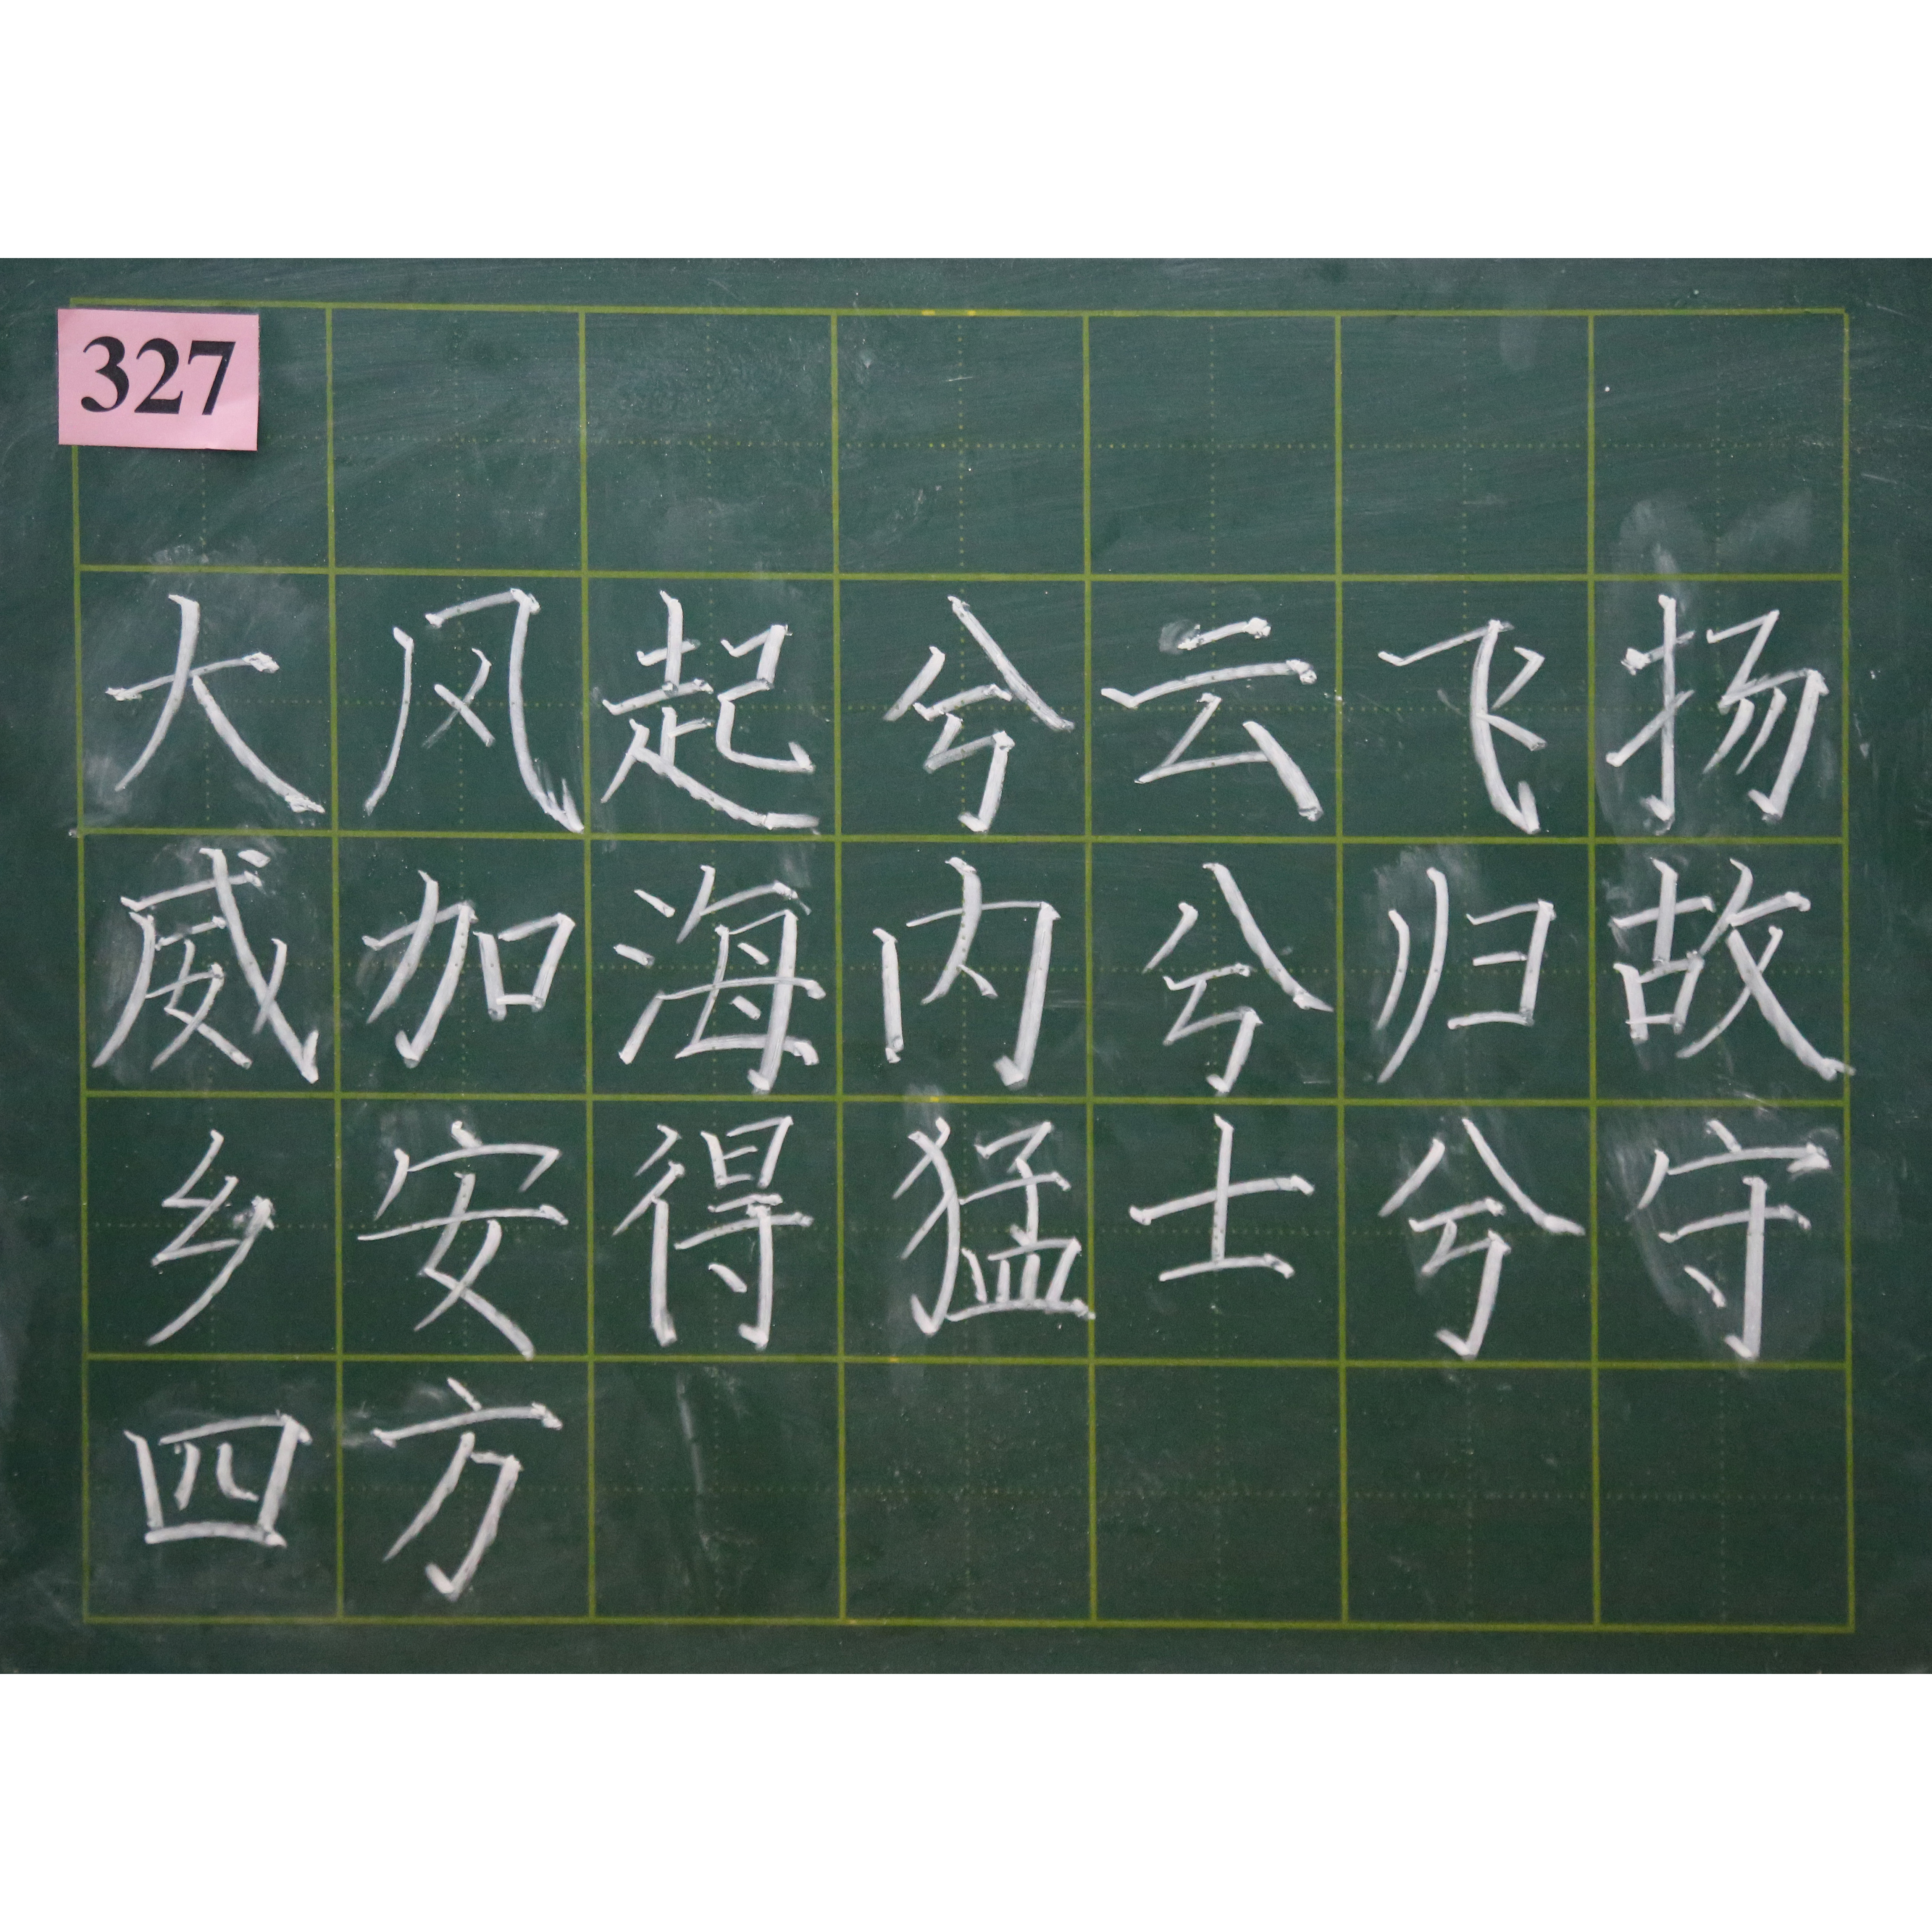 327
大风起兮云飞扬
威加海内兮归故
乡安得猛士兮守
四方